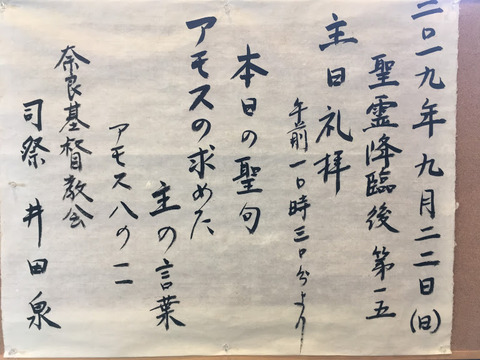 二〇一九年九月二二日(日)
聖霊降臨後第一五
主日礼拝
午前一〇時三〇分より
本日の聖句
アモスの求めた
主の言葉
アモス八の一一
奈良基督教会
司祭 井田泉